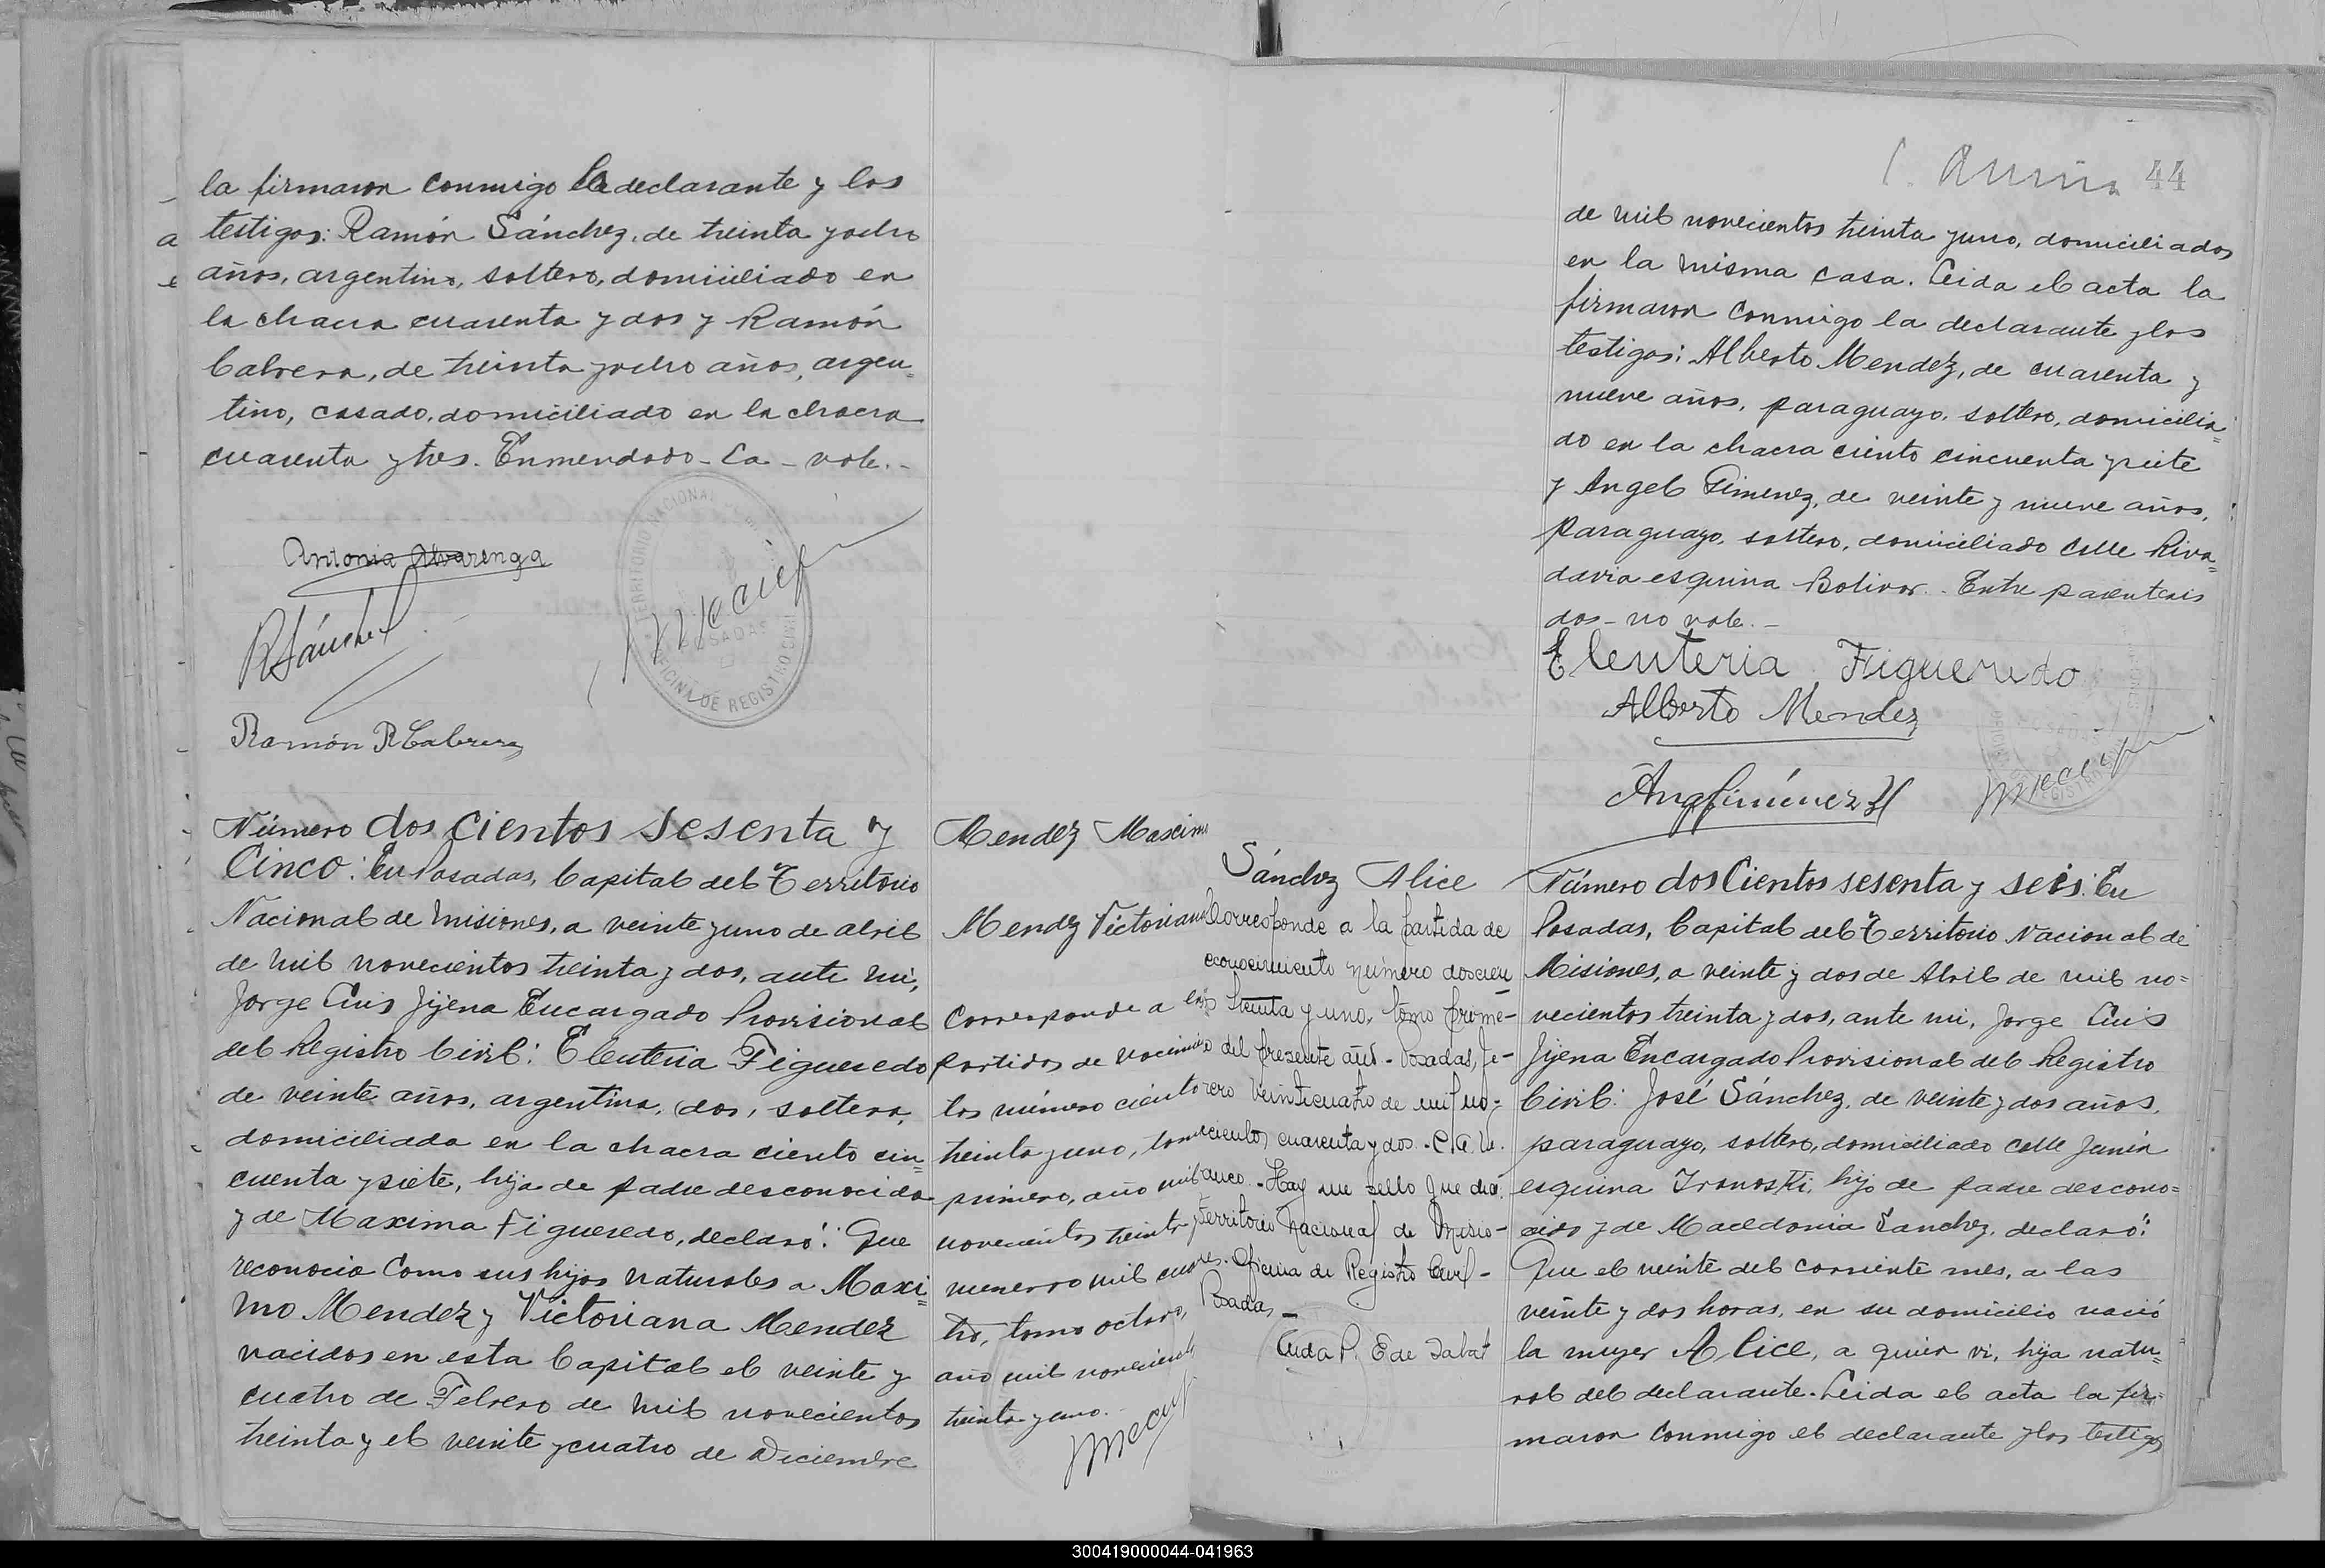 la firmaron conmigo la declarante y los
testigos: Ramón Sánchez, de treinta y ocho
años, argentino, soltero, domiciliado en
la chacra cuarenta y dos y Ramón
Cabrera, de treinta y ocho años, argen=
tino, casado, domiciliado en la chacra
cuarenta y tres. Enmendado - La - vale. -
Antonia Alvarenga
RSánchez
Ramón R Cabrera
TERRITORIO NACIONAL
POSADAS
OFICINA DE REGISTRO CIVIL
Número dos cientos sesenta y
Cinco: En Posadas, Capital del Territorio
Nacional de Misiones, a veinte y uno de abril
de mil novecientos treinta y dos, ante mi,
Jorge Luis Jijena Encargado Provisional
del Registro Civil: Eleuteria Figueredo
de veinte años, argentina, (dos, soltera,
domiciliada en la chacra ciento cin=
cuenta y siete, hija de padre desconocido
y de Maxima Figueredo, declaró: Que
reconocia como sus hijos naturales a Maxi=
mo Mendez y Victoriana Mendez
nacidos en esta Capital el veinte y
cuatro de Febrero de mil novecientos
treinta y el veinte y cuatro de Diciembre
Mendez Maximo
Mendez Victoriana
Corresponde a las
partidas de nacimien
tos número ciento
treinta y uno, tomo
primero, año mil
novecientos treinta y
número mil cua
tro, tomo octavo,
año mil novecientos
treinta y uno.
44
de mil novecientos treinta y uno, domiciliados
en la misma casa. Leida el acta la
firmaron conmigo la declarante y los
testigos: Alberto Mendez, de cuarenta y
nueve años, paraguayo, soltero, domicilia=
do en la chacra ciento cincuenta y siete
y Angel Gimenez, de veinte y nueve años,
paraguayo, soltero, domiciliado calle Riva=
davia esquina Bolivar. Entre parentesis
dos - no vale. -
Eleuteria Figueredo
Alberto Mendez
Ang Giménez H
Sánchez Alice
Corresponde a la partida de
reconocimiento número doscien
tos treinta y uno, tomo prime-
ro del presente año - Posadas, Fe-
brero veinticuatro de mil no-
vecientos cuarenta y dos.
Hay un sello que dice:
Territorio Nacional de Misio-
nes. Oficina de Registro Civil -
Posadas -
Número dos Cientos sesenta y seis: En
Posadas, Capital del Territorio Nacional de
Misiones, a veinte y dos de Abril de mil no=
vecientos treinta y dos, ante mi, Jorge Luis
Jijena Encargado Provisional del Registro
Civil: José Sánchez, de veinte y dos años,
paraguayo, soltero, domiciliado calle Junin
esquina Tronoski, hijo de padre descono=
cido y de Macedonia Sanchez, declaró:
Que el veinte del corriente mes, a las
veinte y dos horas, en su domicilio nació
la mujer Alice, a quien vi, hija natu=
ral del declarante. Leida el acta la fir=
maron conmigo el declarante y los testigos
300419000044-041963